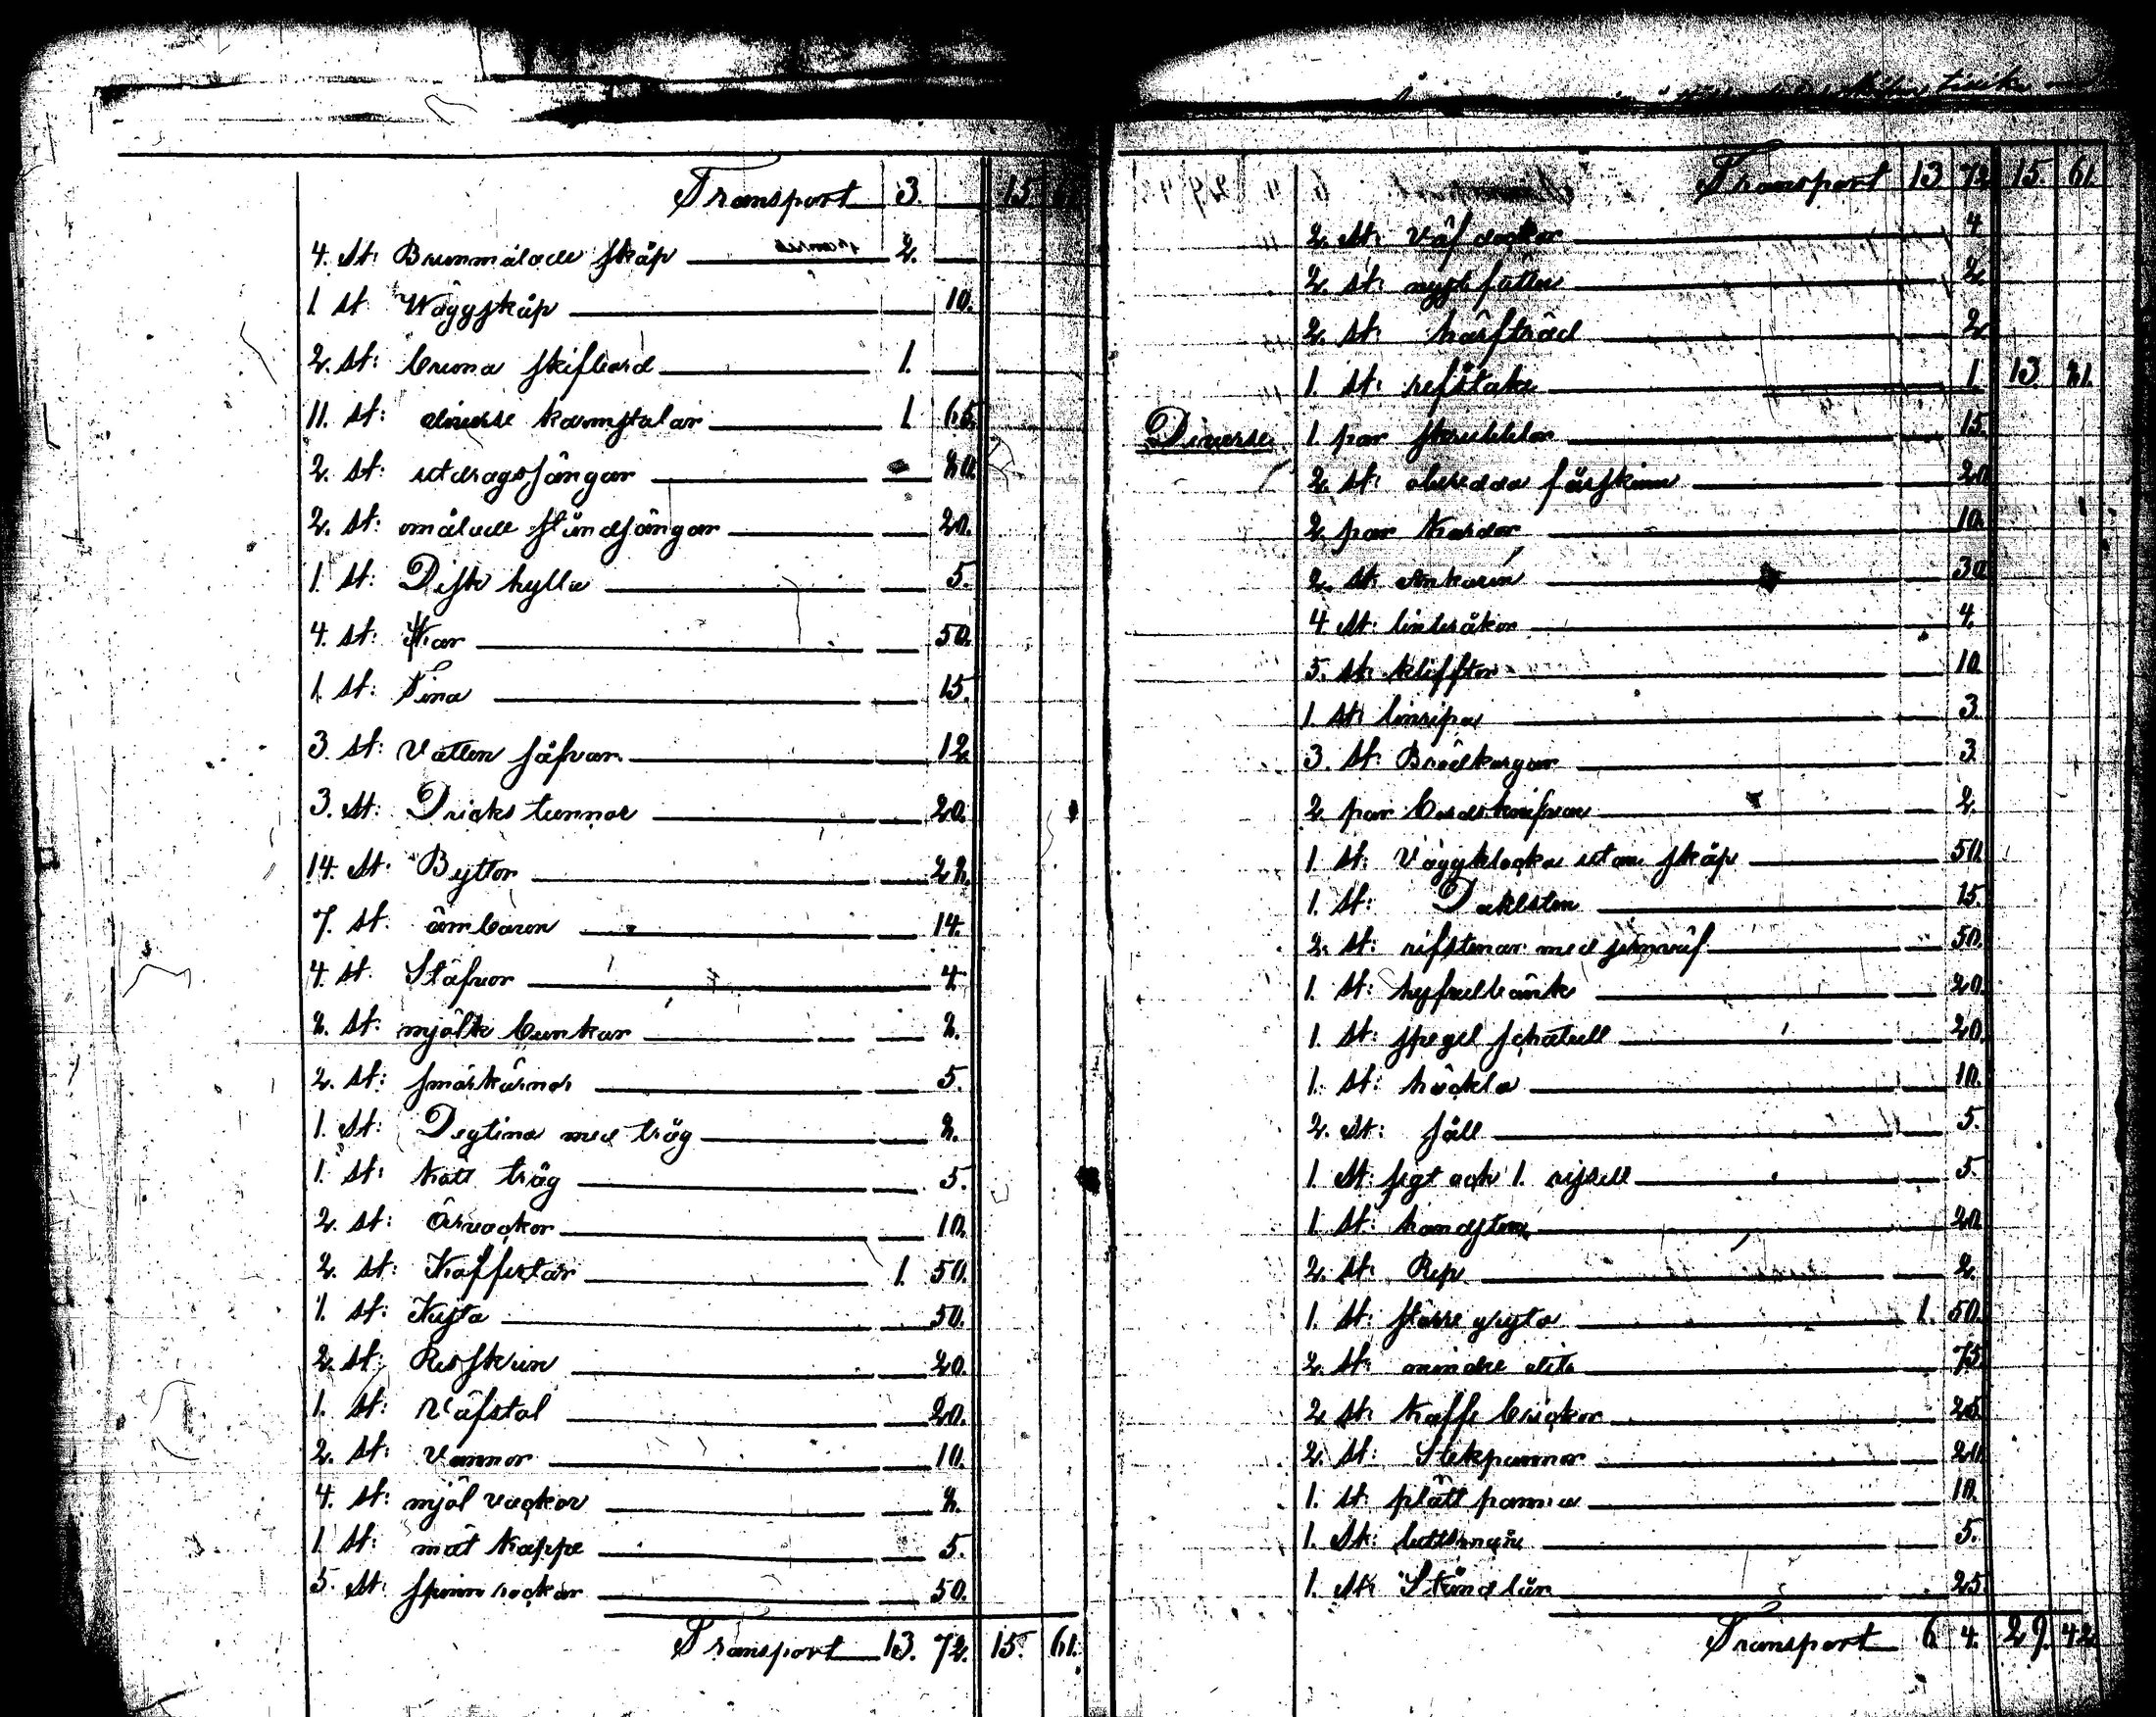 Transport 3. 15 61
4. St: Brunmålade skåp 2.
1 st Väggskåp 10.
2. st: bruna skifbord 1.
11. st: diverse karmstolar 1. 65
2. st: utdragssängar 80.
2. st: omålade ståndsängar 20.
1. st: Disk hylla 5.
4. st: Kar 50.
1. st: Tina 15.
3. st: Vatten såfvar 12
3. st: Dricks tunnor 20.
14. st: Byttor 28.
7. st: ämbaren 14.
4. st: Stäfvor 4
8. st: mjölk bunkar 8.
2. st: smörkärnor 5.
1. st: Degtina med tråg 8.
1. st: kött tråg 5.
2. st: Åkvackor 10
2. st: Koffertar 1. 50.
1. st: Kista 50.
2. st: Resskrin 20.
1. st: Väfstol 20.
2. st: Vannor 10.
4. st: mjöl vackor 8.
1 st: mät kappe 5.
5. st: spinn rockar 50.
Transport 13. 72. 15. 61.
Transport 13 72 15. 61.
2. st: Väf dockor 4
2. st: nystfötter 2.
2. st: härfträd 2
1. st: refstake 1. 13. 81.
Diverse 1 par skrubblor 15.
2. st: oberedda fårskinn 20
2. par Kardor 10.
2. st: Ankarn 30
4. st: linbråkor 4.
5. st: klifftor 10
1 st: linrepa 3
3. st: Brödkorgar 3.
2 par bordsknifvar 2.
1 st: Väggklocka utan skåp 50.
1. st: Dahlsten 15.
2. st: rifstenar med
1. st: hyfvelbänk 20.
1. st: spegel schatull 20.
1. st: häckla 10.
2. st: såll 5.
1 st: sigt och 1. rissell 5.
1. st: handsten 20
2. st: Rep 2.
1 st: större gryta 1. 50.
2 st: mindre dito 75
2 st: kaffe brickor 25.
2. st: Stekpannor 20
1. st: plättpanna 10.
1. st: 5.
1. st: Ståndlår 25
Transport 6 4. 29. 42